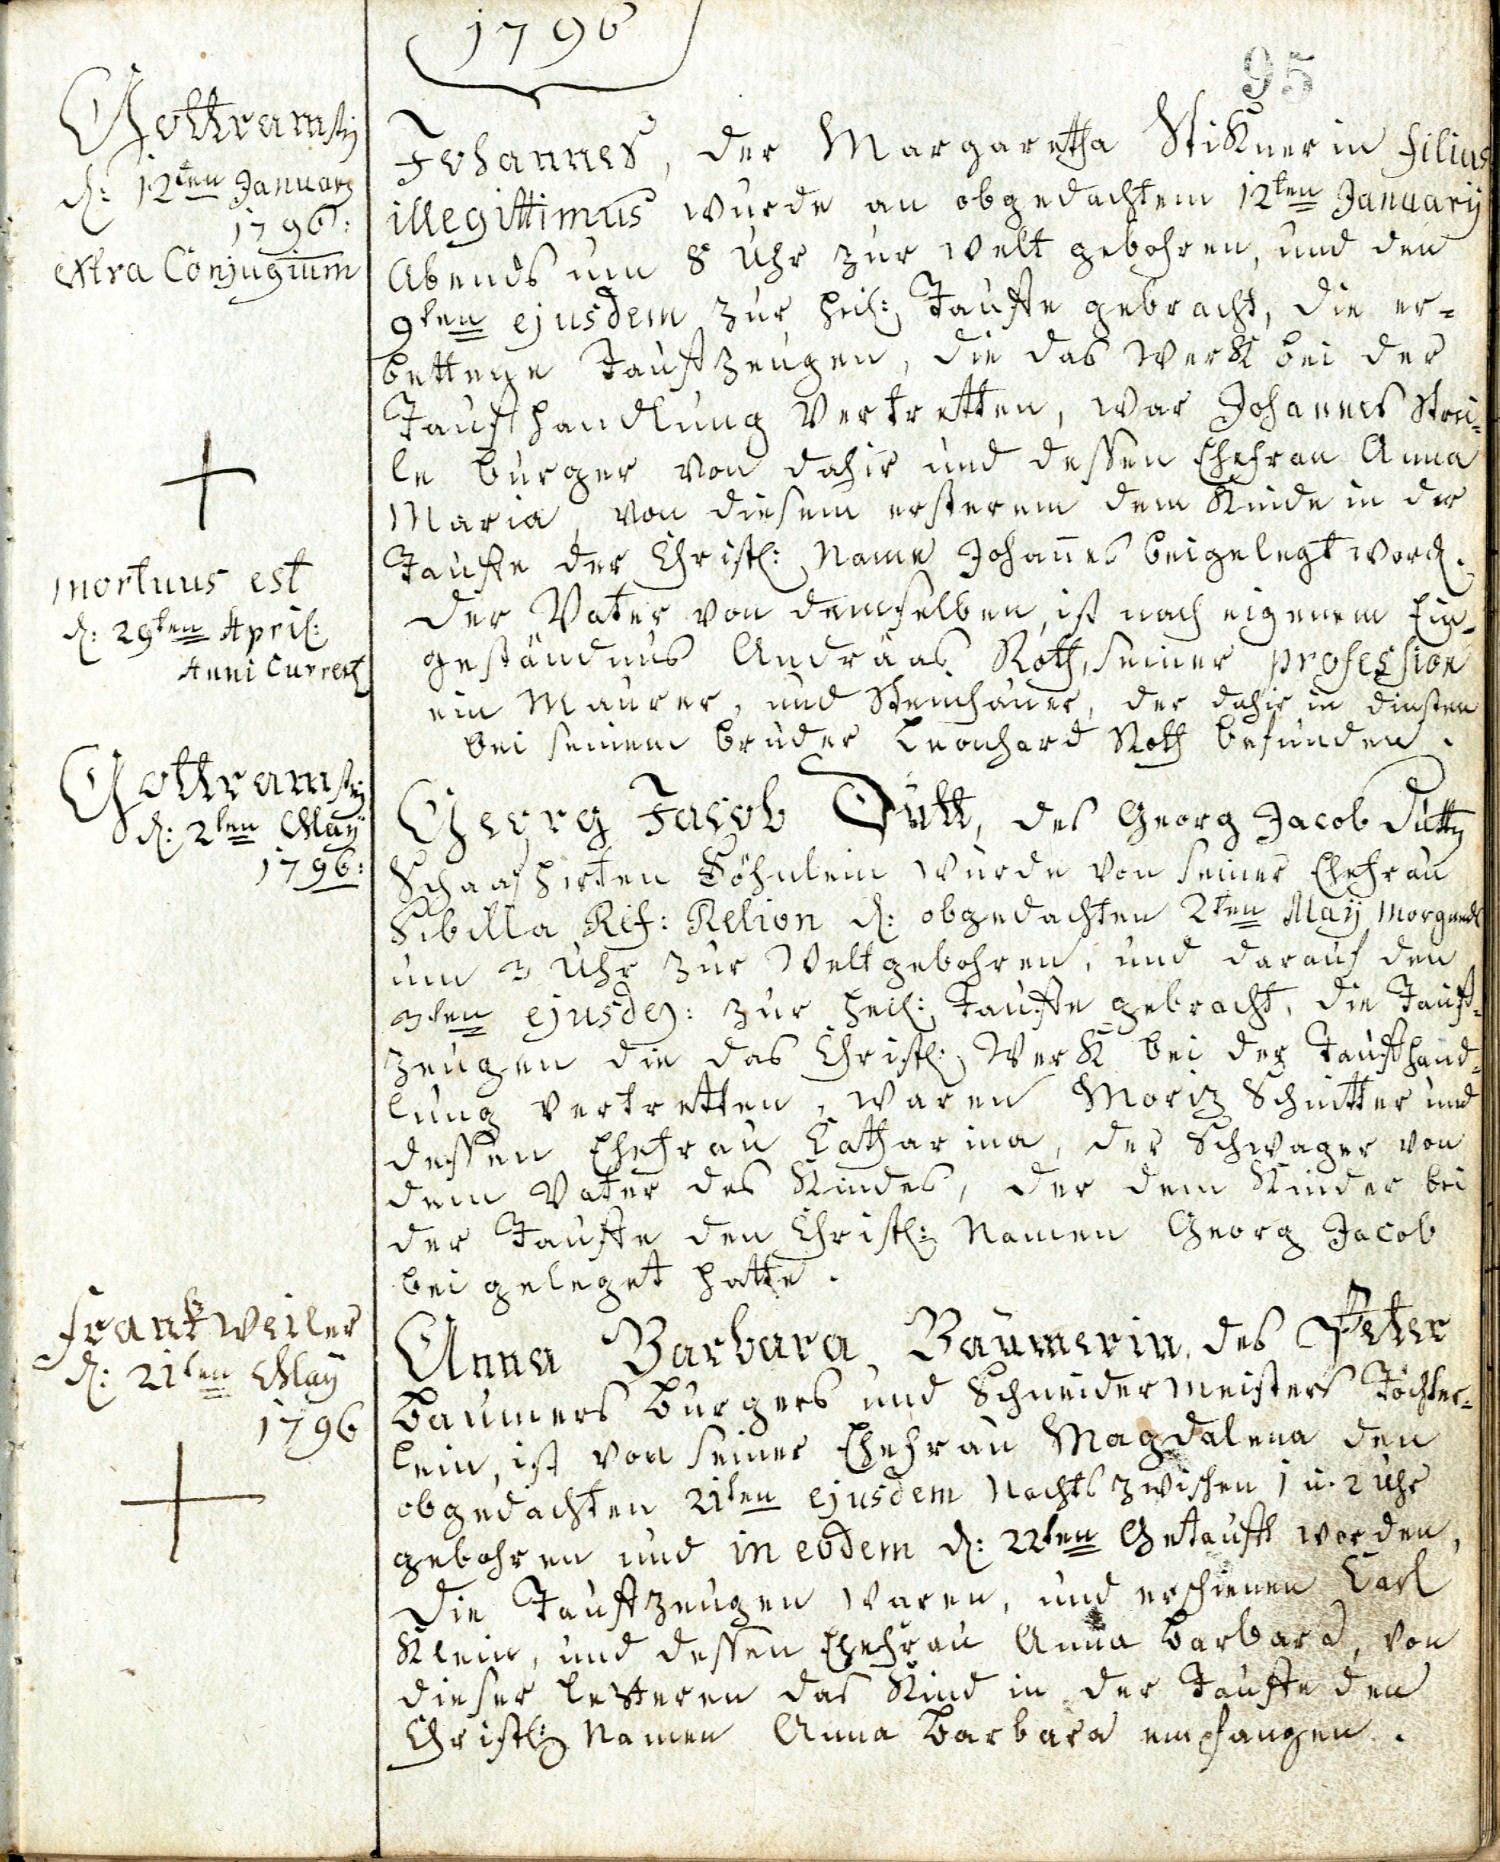 1796
95
Gottramsty
d: 12ten January
1796:
extra Conjugium
Johannes, der Margaretha Stiknerin filius
illegittimus wurde an obgedachtem 12ten January
Abends um 8 Uhr zur Welt gebohren, und den
9ten ejusdem zur heil: Tauffe gebracht, die er=
bettene Taufzeugen, die das Werk bei der
Taufhandlung Vertretten, war Johannes Strei=
le burger von dahir und dessen Ehefrau Anna
Maria, von diesem ersterem dem Kinde in der
Tauffe der Christl: Name Johannes beigelegt word.
der Vater von demselben, ist nach eigenem Ein=
geständnus Andräas Roth, seiner profession
ein Maurer, und Steinhauer, der dahir in diensten
bei seinem bruder Leonhard Roth befunden.
mortuus est
d: 29ten April:
Anni Current
Gottramsty
d: 2ten May
1796:
Georg Jacob Dütt, des Georg Jacob Dütty
Schaafhirten Söhnlein wurde von seiner Ehefrau
Sibilla Ref: Relion d: obgedachten 2ten May Morgends
um 3 Uhr zur Welt gebohren, und darauf den
3ten ejusdem: zur heil: Tauffe gebracht, die Tauf=
zeugen die das Christl: Werk bei der Taufhand=
lung vertretten, waren Moriz Schnitter und
dessen Ehefrau Catharina, der Schwager von
dem Vater des Kindes, der dem Kinder bei
der Tauffe den Christl: Namen Georg Jacob
beigeleget hatte.
Frankweiler
d: 21ten May
1796
Anna Barbara Baumerin, des Peter
Baumers Burgers und Schneidermeisters Töchter=
lein, ist von seiner Ehefrau Magdalena den
obgedachten 21ten ejusdem Nachts zwischen 1 u. 2 Uhr
gebohren und in eodem d: 22ten Getauft worden,
die Taufzeugen waren, und erschienen Carl
Klein, und dessen Ehefrau Anna Barbara, von
dieser letzteren das Kind in der Tauffe den
Christl: Namen Anna Barbara empfangen.